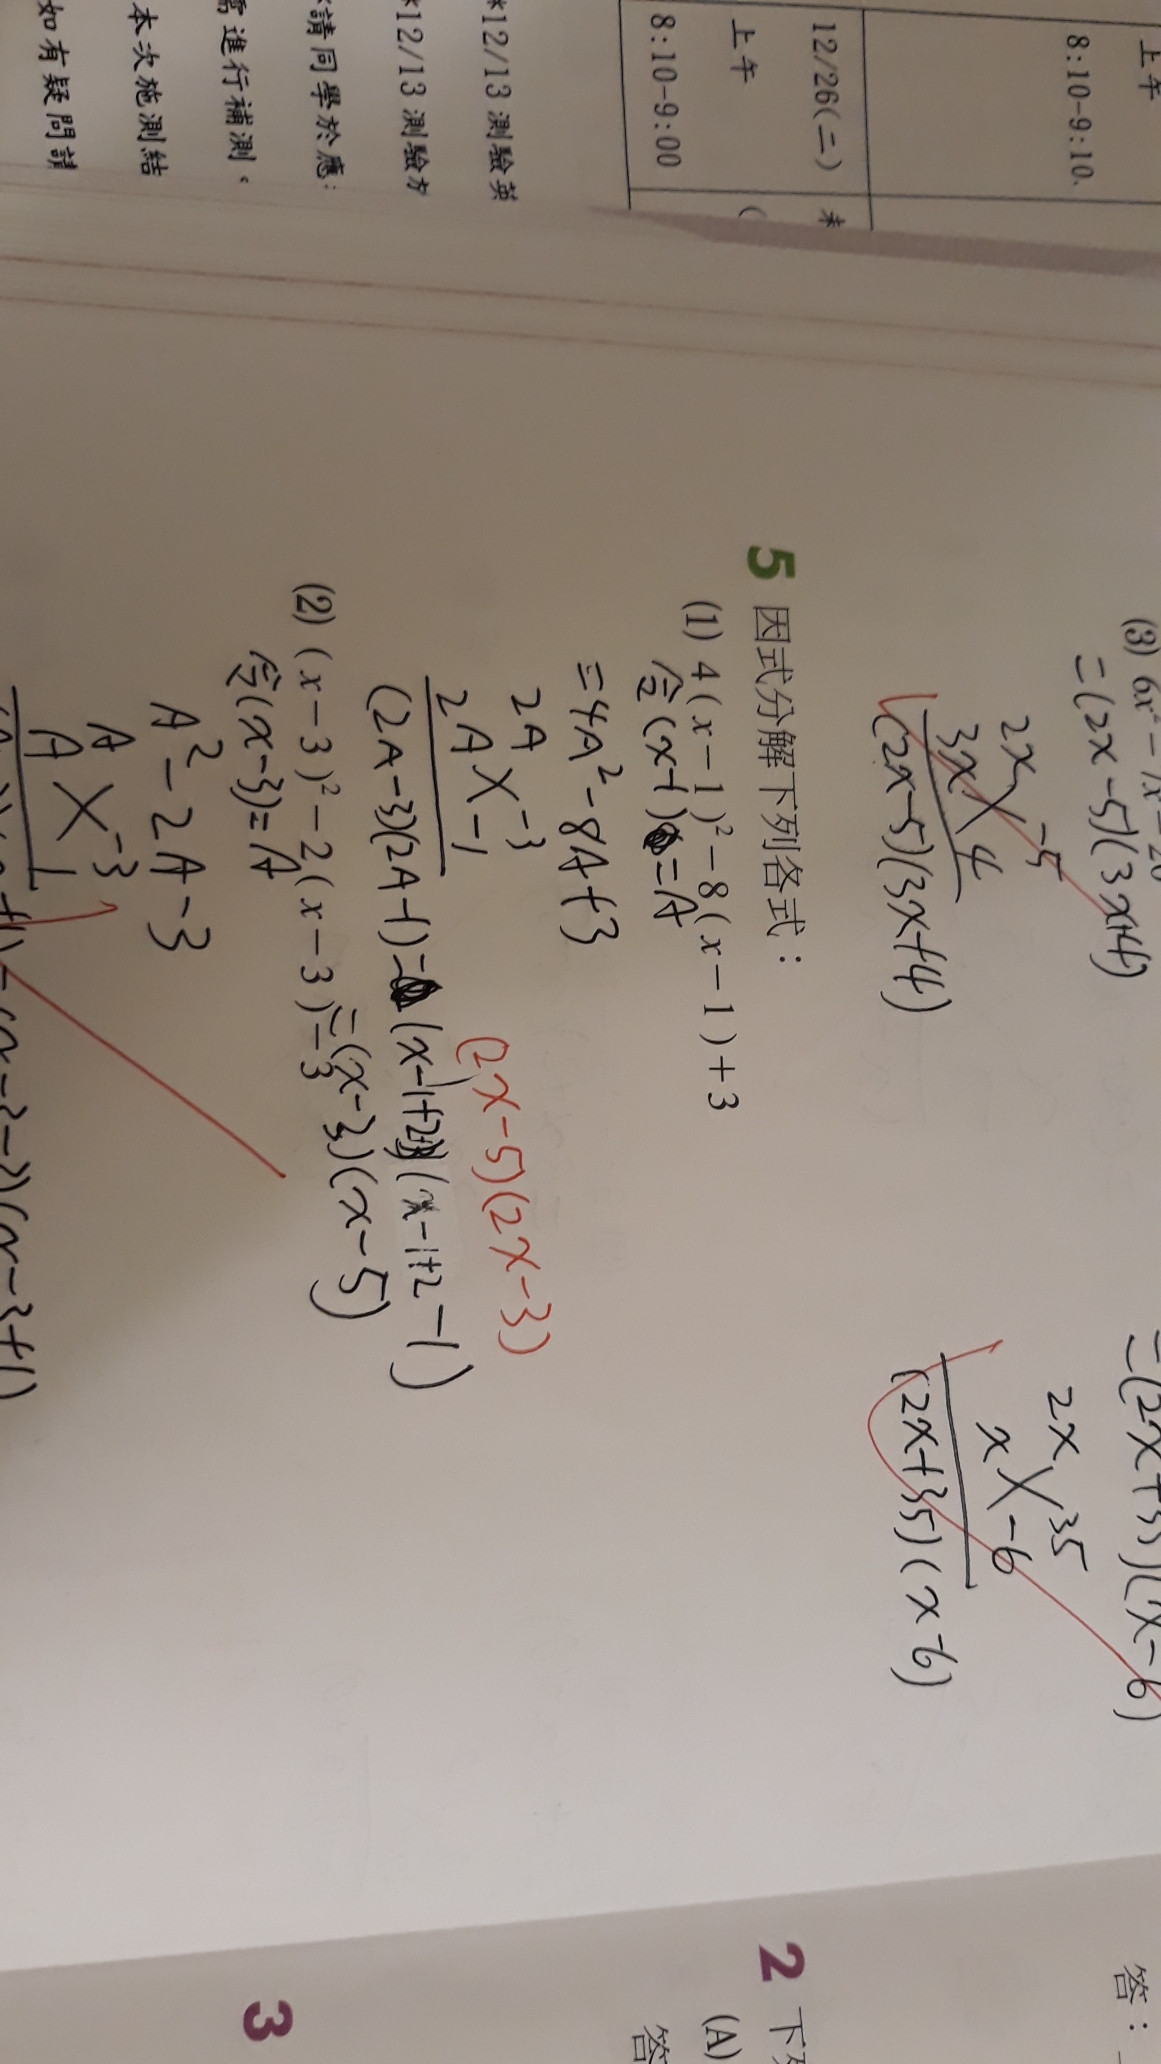 上午
8:10-9:10.
12/26(二)
上午
8:10-9:00
*12/13 測驗英
*12/13 測驗
請同學於應
需進行補測。
本次施測結
如有疑問請
(3) 6x²-7x-20
=(2x-5)(3x+4)
2x -5
3x 4
(2x-5)(3x+4)
=(2x+35)(x-6)
2x 35
x -6
(2x+35)(x-6)
5 因式分解下列各式：
(1) 4(x-1)²-8(x-1)+3
令(x-1)=A
=4A²-8A+3
2A -3
2A -1
(2A-3)(2A-1)=(x-1+2)(x-1+2-1)
(2x-5)(2x-3)
=(x-3)(x-5)
(2) (x-3)²-2(x-3)-3
令(x-3)=A
A²-2A-3
A -3
A 1
=(x-3-3)(x-3+1)
答：
2 下列
(A)
答
3